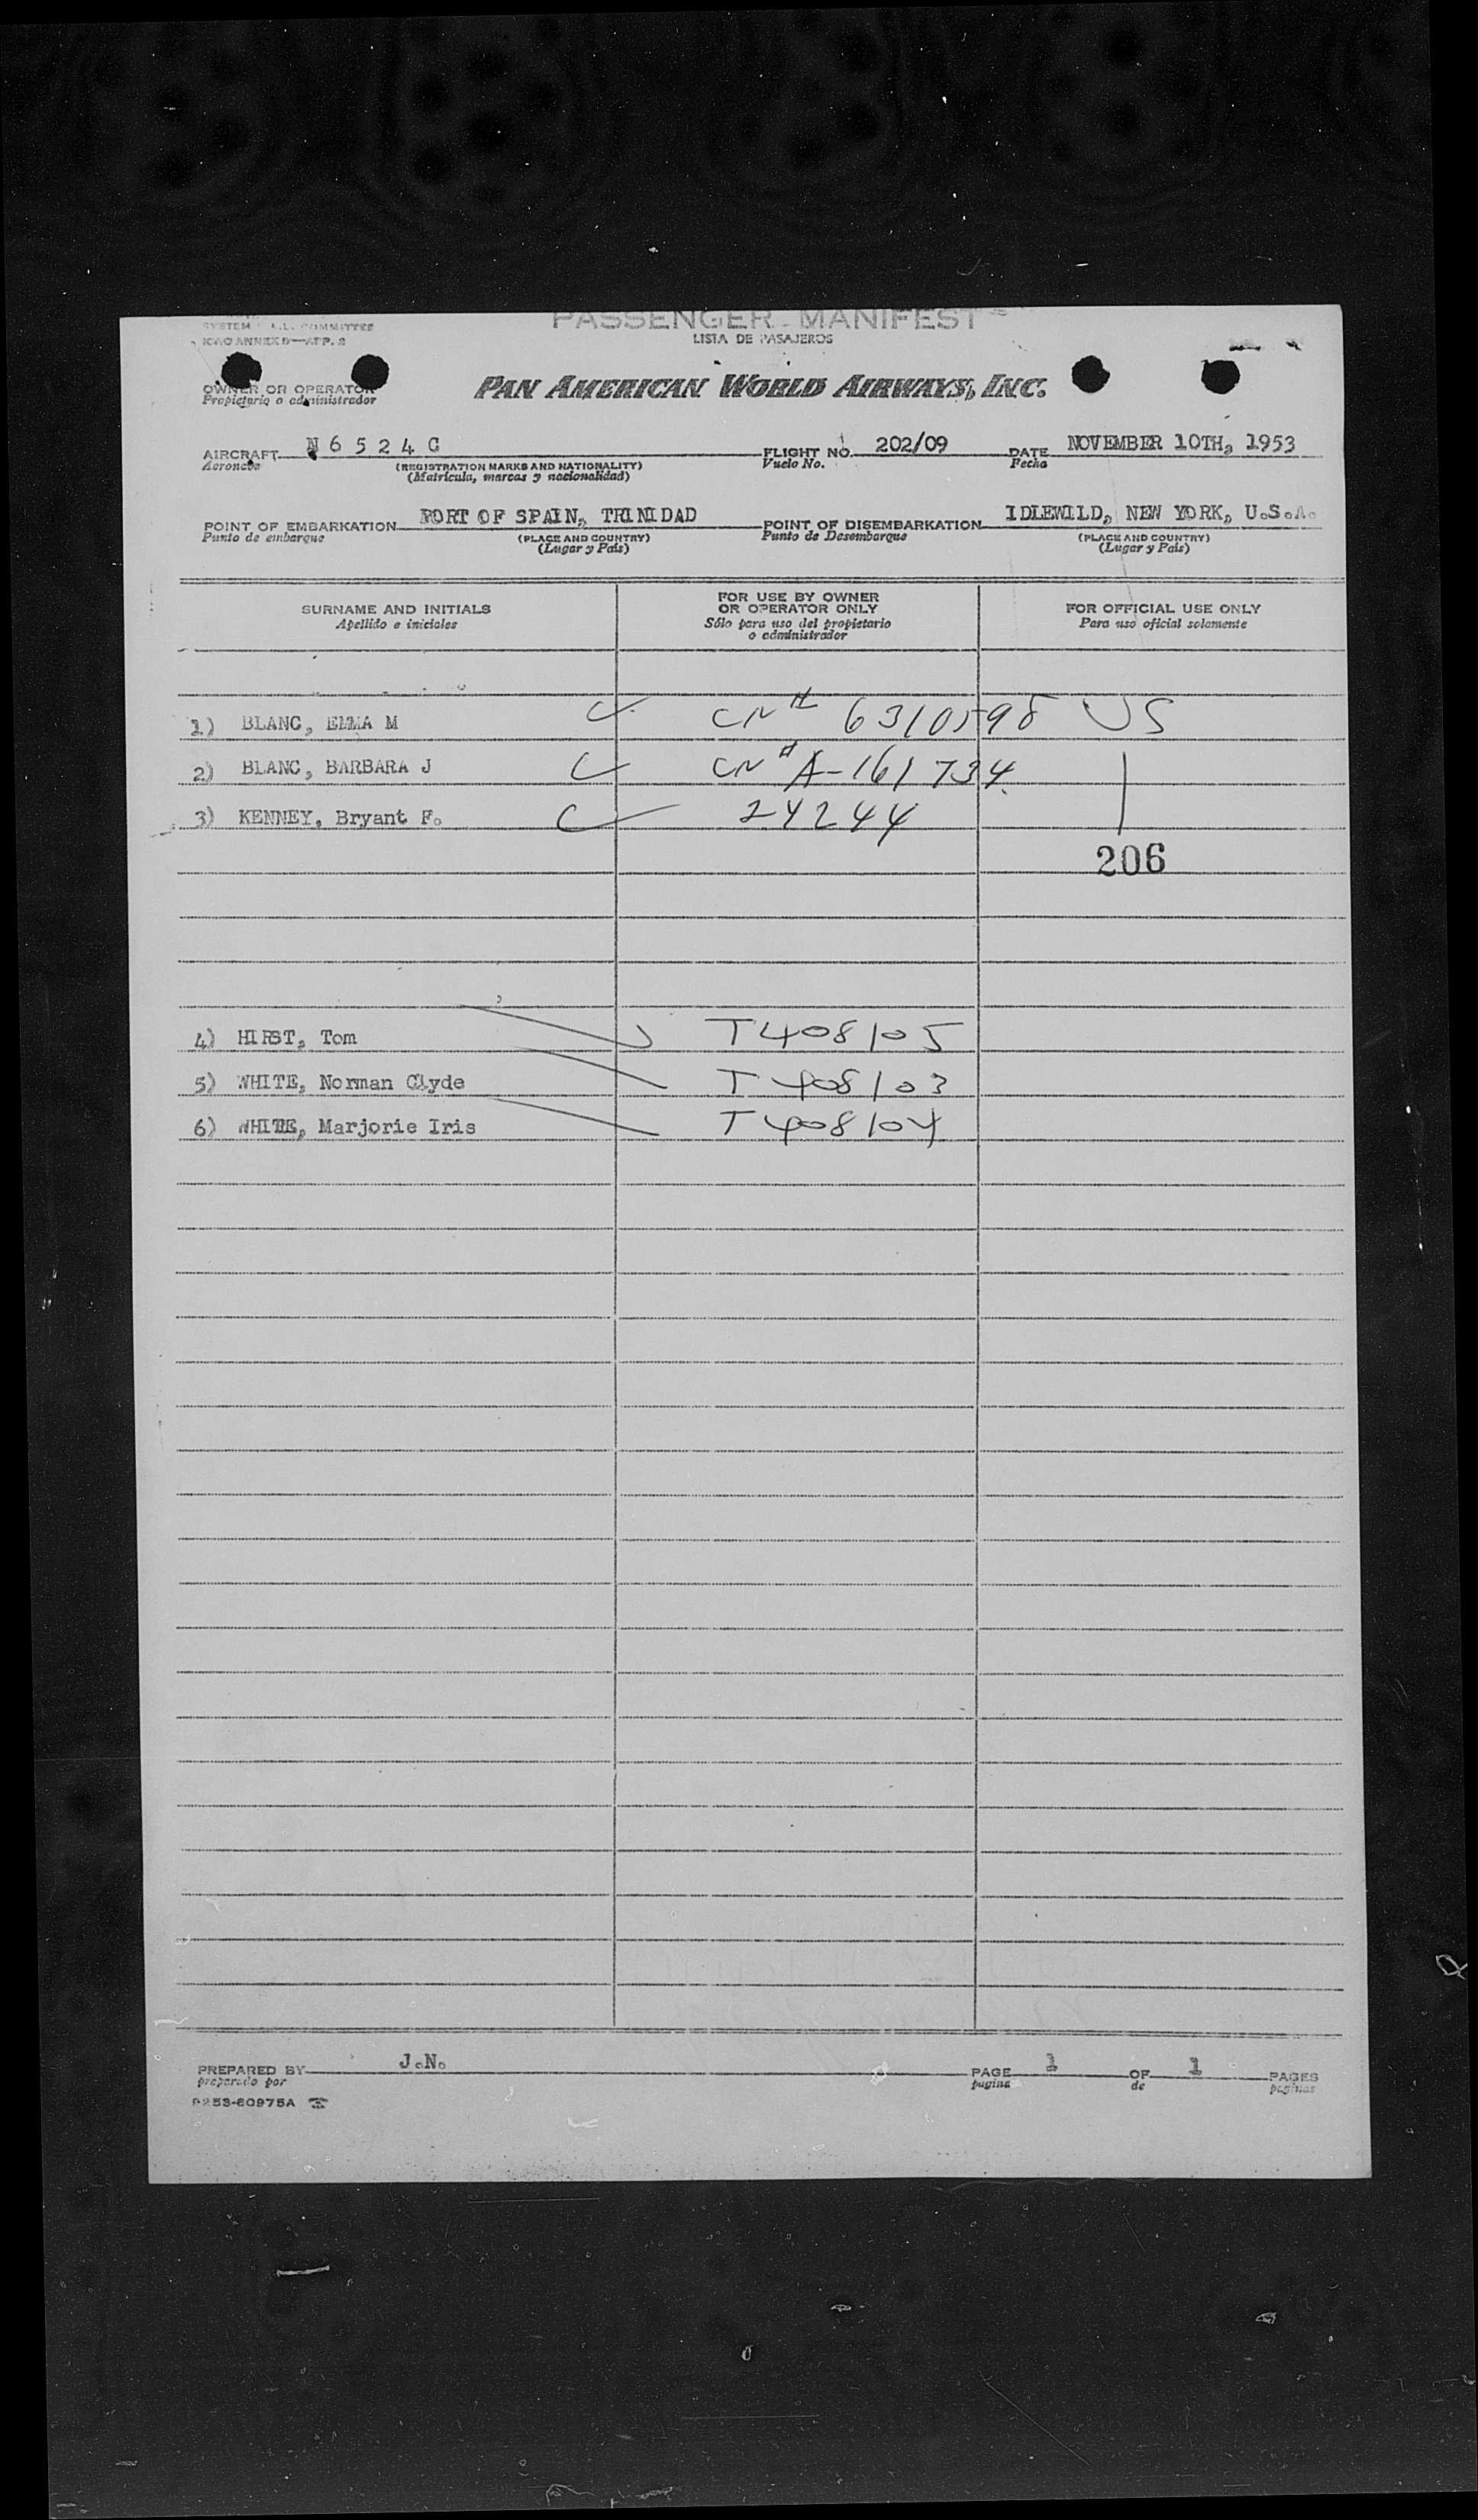 PASSENGER MANIFEST
SYSTEM COMMITTEE
LISTA DE PASAJEROS
ICAO ANNEX 9—APP. 2
OWNER OR OPERATOR
Propietario o administrador
PAN AMERICAN WORLD AIRWAYS, INC.
AIRCRAFT N 6 5 2 4 C FLIGHT NO. 202/09 DATE NOVEMBER 10TH, 1953
Aeronave (REGISTRATION MARKS AND NATIONALITY) Vuelo No. Fecha
(Matricula, marcas y nacionalidad)
POINT OF EMBARKATION PORT OF SPAIN, TRINIDAD POINT OF DISEMBARKATION IDLEWILD, NEW YORK, U.S.A.
Punto de embarque (PLACE AND COUNTRY) Punto de Desembarque (PLACE AND COUNTRY)
(Lugar y País) (Lugar y País)
SURNAME AND INITIALS FOR USE BY OWNER OR OPERATOR ONLY FOR OFFICIAL USE ONLY
Apellido e iniciales Sólo para uso del propietario o administrador Para uso oficial solamente
1) BLANC, EMMA M CN# 6310598 US
2) BLANC, BARBARA J CN# A-161734
3) KENNEY, Bryant F. 24244
206
4) HIRST, Tom T408105
5) WHITE, Norman Clyde T408103
6) WHITE, Marjorie Iris T408104
PREPARED BY J.N. PAGE 1 OF 1 PAGES
preparado por pagina de paginas
0253-60975A